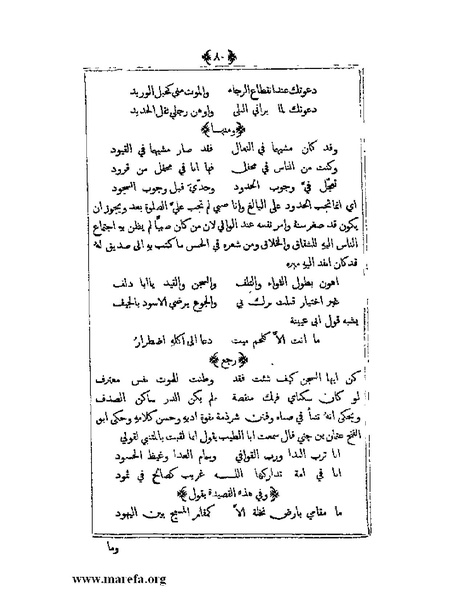 ﴿٨٠﴾
دعوتك عند انقطاع الرجاء والموت مني كحبل الوريد
دعوتك لما براني البلى واوهن رجلي ثقل الحديد
﴿ومنها﴾
وقد كان مشيهما في النعال فقد صار مشيهما في القيود
وكنت من الناس في محفل فها انا في محفل من قرود
تعجل في وجوب الحدود وحدي قبل وجوب السجود
اي انما تجب الحدود على البالغ وانا صبي لم تجب علي الصلوة بعد ويجوز ان
يكون قد صغر سنه وامر نفسه عند الوالي لان من كان صبيا لم يظن به اجتماع
الناس اليه للشقاق والخلاف ومن شعره في الحبس ما كتب به الى صديق له
قد كان انفذ اليه مبره
اهون بطول الثواء والتلف والسجن والقيد يا ابا دلف
غير اختيار قبلت برك بي والجوع يرضي الاسود بالجيف
يشبه قول ابي عيينة
ما انت الا كلحم ميت دعا الى اكله اضطرار
﴿رجع﴾
كن ايها السجن كيف شئت فقد وطنت للموت نفس معترف
لو كان سكناي فيك منقصة لم يكن الدر ساكن الصدف
ويحكى انه تنبأ في صباه وفتن شرذمة بقوة ادبه وحسن كلامه وحكى ابو
الفتح عثمان بن جني قال سمعت ابا الطيب يقول انما لقبت بالمتنبي لقولي
انا ترب الندا ورب القوافي وسمام العدا وغيظ الحسود
انا في امة تداركها اللـه غريب كصالح في ثمود
﴿وفي هذه القصيدة يقول﴾
ما مقامي بارض نخلة الا كمقام المسيح بين اليهود
وما
www.marefa.org